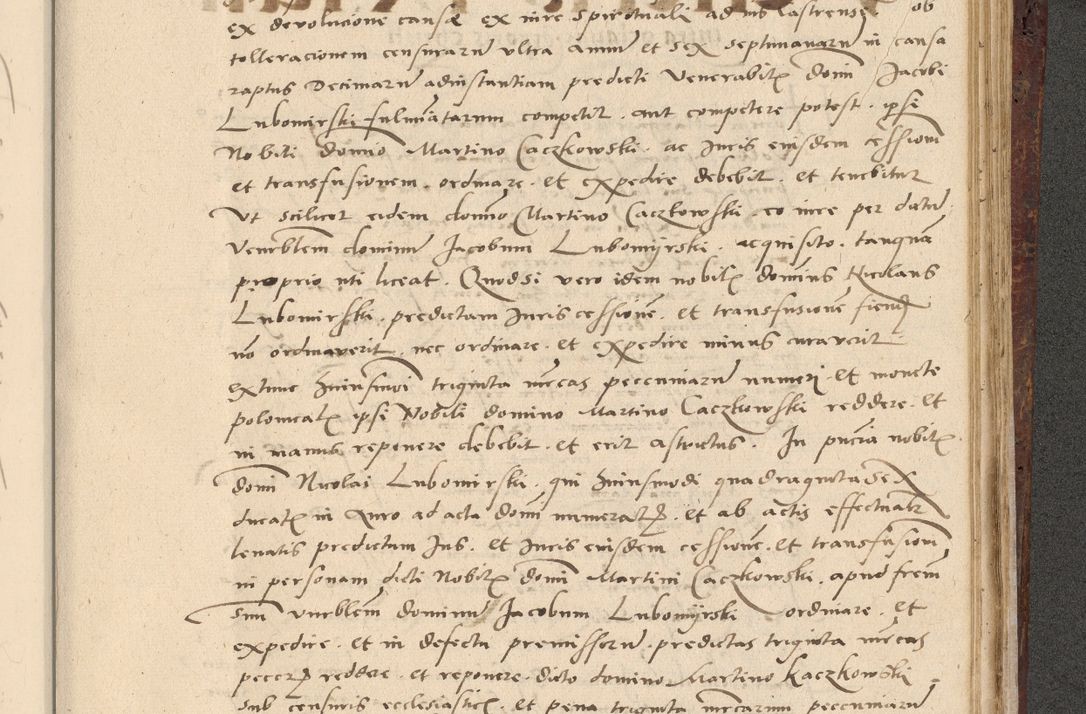 ex devolucione causæ ex iure spirituali ad ius castrense ob
tolleracionem censurarum ultra annum et sex septimanarum in causa
raptus Decimarum ad instantiam predicti Venerabilis domini Jacobi
Lubomirski fulminatarum competit. aut competere potest. ipsi
Nobili domino Martino Caczkowski. ac Juris eiusdem cessionem
et transfusionem. ordinare. et expedire debebit. et tenebitur
Ut scilicet eidem domino Martino Caczkowski. eo iure per dictum
venerabilem dominum Jacobum Lubomyrski. acquisito. tanquam
proprio uti liceat. Quodsi vero idem nobilis dominus Nicolaus
Lubomirski. predictam Juris cessionem. et transfusionem fiendam
non ordinaverit. nec ordinare. et expedire minus curaverit
extunc huiusmodi triginta marcas peccuniarum numeri. et monete
polonicalis ipsi Nobili domino Martino Caczkowski reddere. et
in manus reponere debebit. et erit astrictus. In presencia nobilis
domini Nicolai Lubomirski. qui huiusmodi quadraginta sex
ducatos in Auro ad acta domini numeratos. et ab actis effectualiter
levatis predictum Jus. et Juris eiusdem cessionem. et transfusionem
in personam dicti Nobilis domini Martini Caczkowski. apud fratrem
suum venerabilem dominum Jacobum Lubomyrski ordinare. et
expedire. et in defectu premissorum. predictas triginta marcas
peccuniarum reddere. et reponere. dicto domino Martino Kaczkowski
sub censuris ecclesiasticis. et pena triginta marcarum peccuniarum